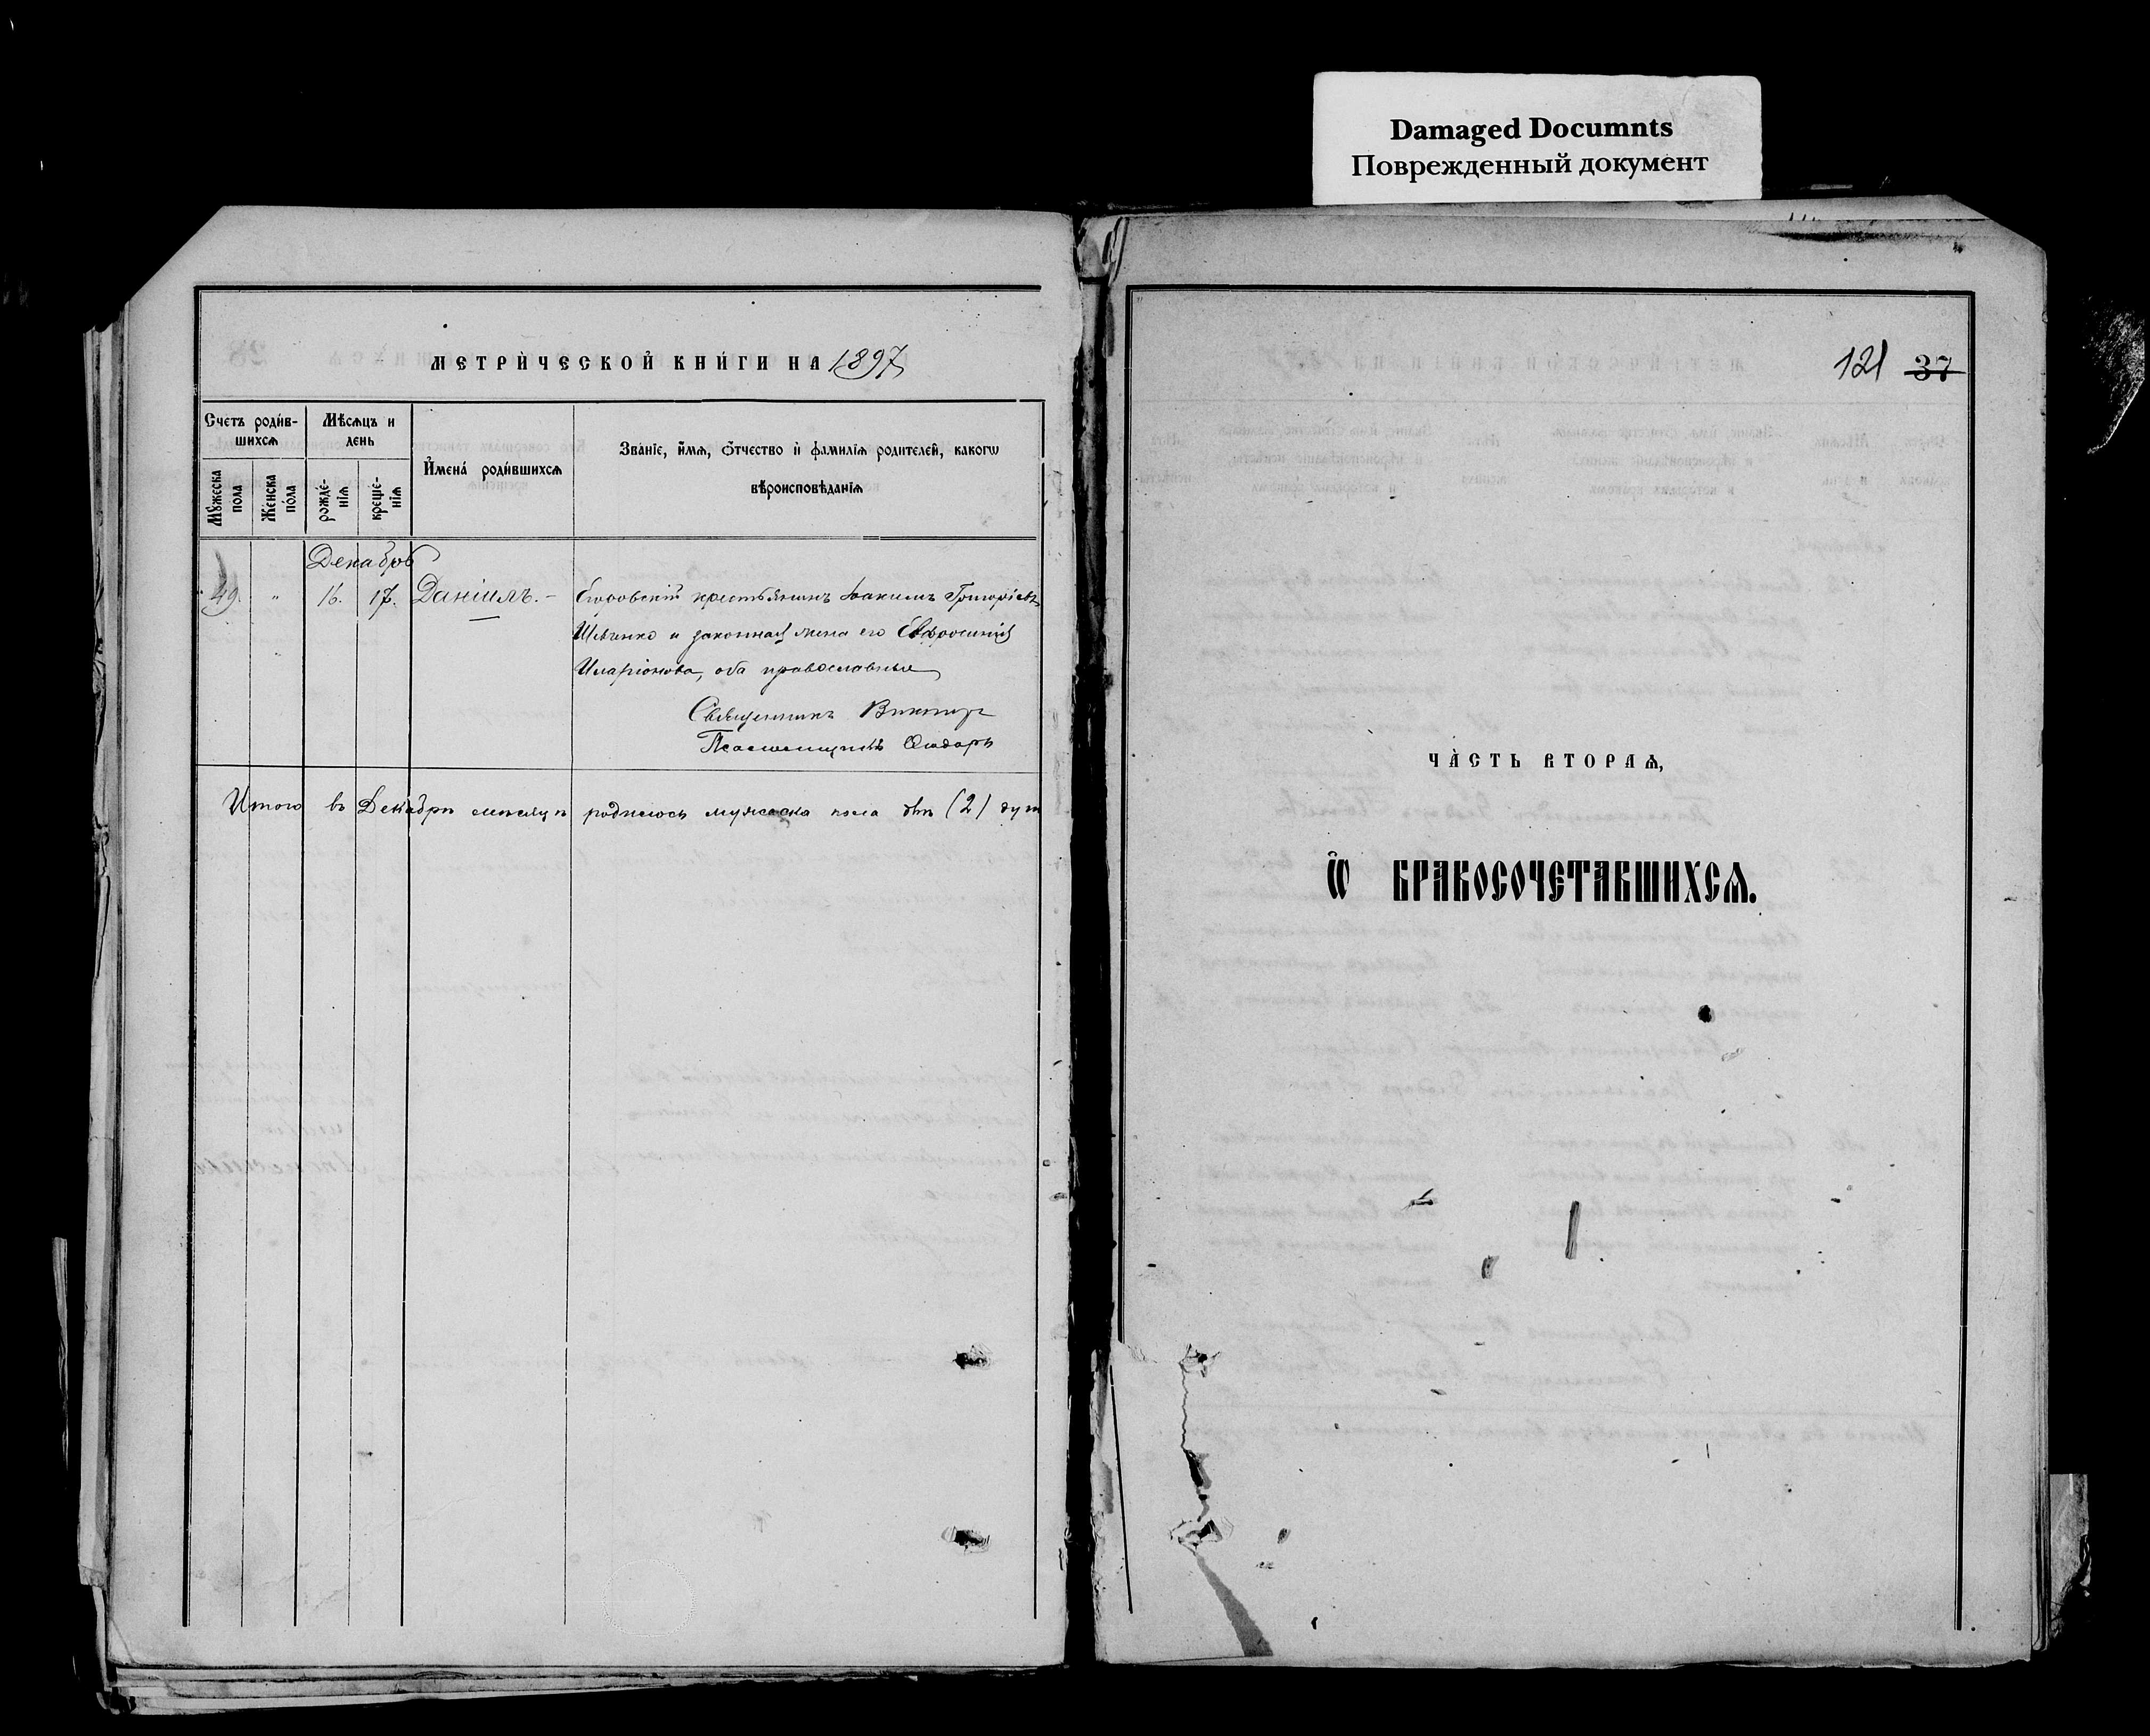 Damaged Documnts
Поврежденный документ
МЕТРИ́ЧЕСКОЙ КНИ́ГИ НА 1897
Счетъ роди́в-
шихсѧ
Мѣсѧцъ и
день
И҆мена̀ роди́вшихсѧ
Зва́нїе, и҆́мѧ, ѻ҆́тчество и҆ фамилїѧ родителей, какогѡ
вѣроисповѣданїѧ
Мꙋжеска
пола
Женска
пола
рожде́-
нїѧ
креще-
нїѧ
Декабрь
49. " 16. 17. Данiилъ. — крестьянинъ Іоакимъ Григоріевъ
Шевченко и законная жена его Евфросинія
Иларіонова, оба православные
Священникъ Викторъ
Псаломщикъ Ѳеодоръ
Итого въ Декабрѣ мѣсяцѣ родилось мужеска пола двѣ (2) душ
121 37
ЧА́СТЬ ВТОРАѦ,
Ѡ҆ БРАКОСОЧЕТАВШИХСѦ.